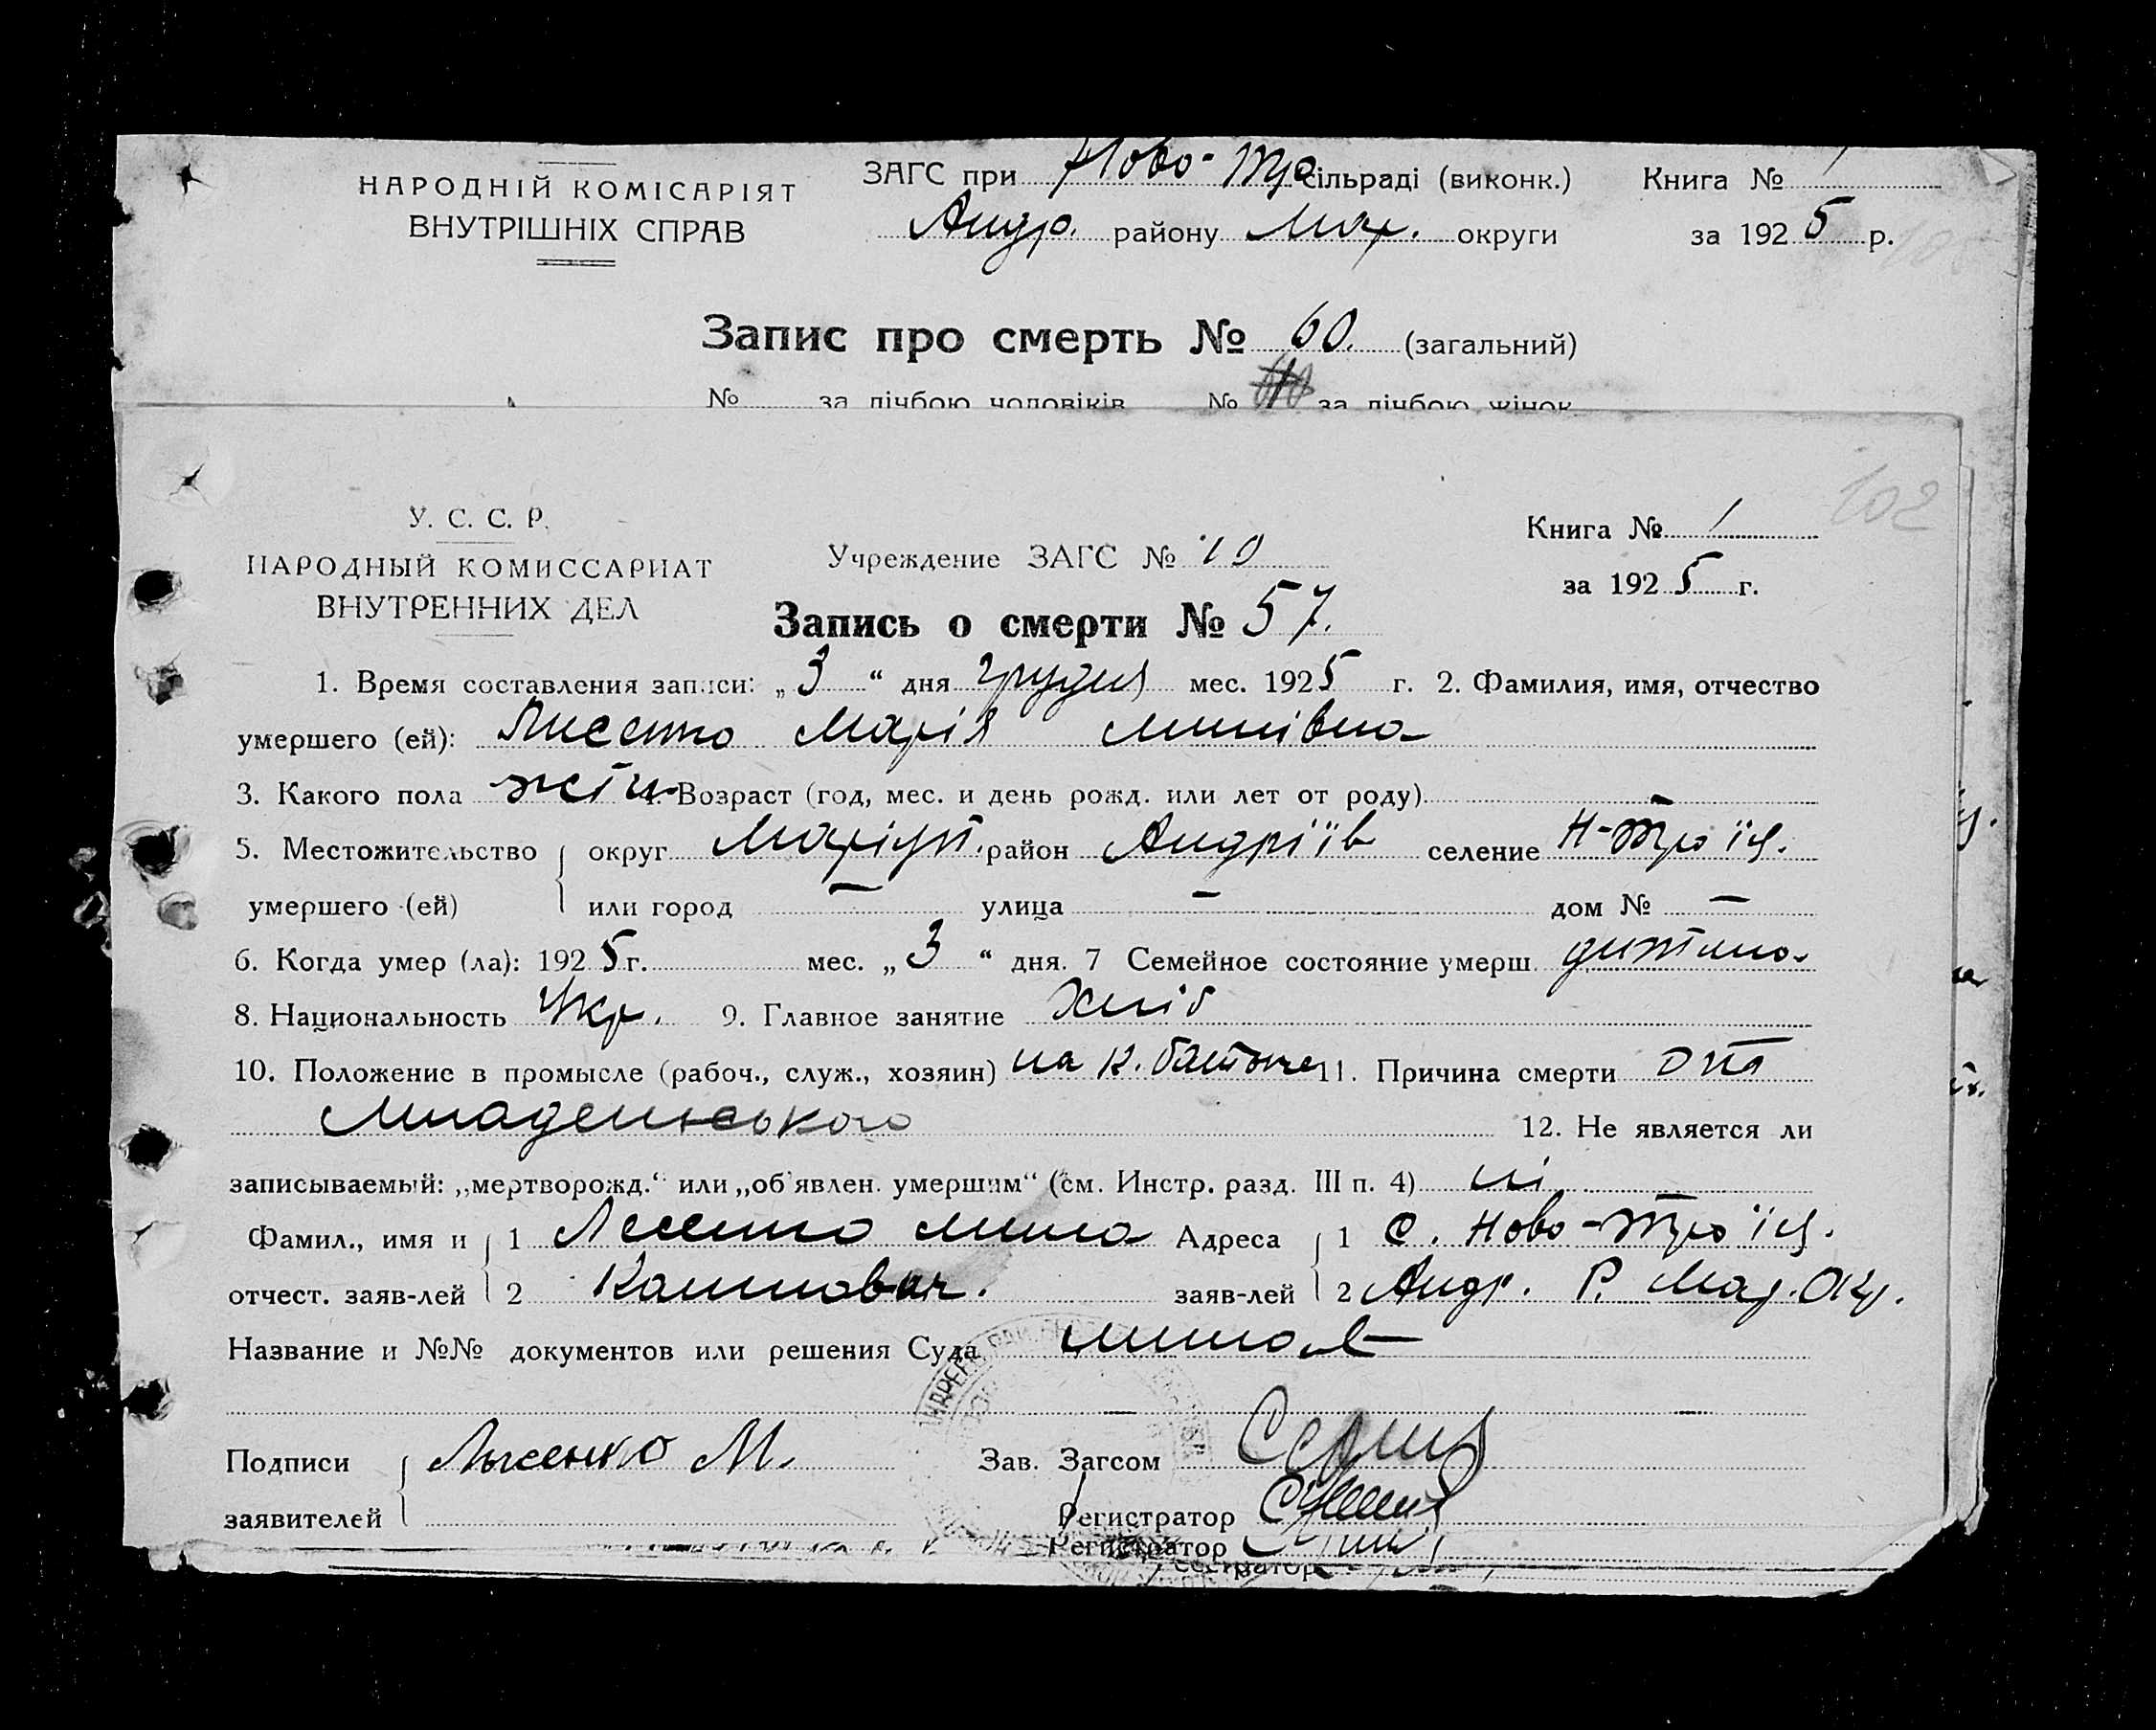 НАРОДНІЙ КОМІСАРІЯТ
ВНУТРІШНІХ СПРАВ
ЗАГС при Ново-Тро сільраді (виконк.) Книга №
Андр. району Мар. округи за 1925 р.
Запис про смерть № 60. (загальний)
№ за лічбою чоловіків № за лічбою жінок
102
У. С. С. Р.
НАРОДНЫЙ КОМИССАРИАТ
ВНУТРЕННИХ ДЕЛ
Учреждение ЗАГС № 10
Книга № 1
за 1925 г.
Запись о смерти № 57.
1. Время составления записи: „3“ дня грудня мес. 1925 г. 2. Фамилия, имя, отчество
умершего (ей): Лисенко Марія Минівна
3. Какого пола жін 4. Возраст (год, мес. и день рожд. или лет от роду) —
5. Местожительство округ Маріуп. район Андріїв селение Н-Троїц.
умершего (ей) или город — улица — дом № —
6. Когда умер (ла): 1925 г. мес. „3“ дня. 7 Семейное состояние умерш. дитина.
8. Национальность Укр. 9. Главное занятие Хліб
10. Положение в промысле (рабоч., служ., хозяин) на 11. Причина смерти од
Младенського 12. Не является ли
записываемый: „мертворожд.“ или „об'явлен. умершим“ (см. Инстр. разд. III п. 4) ні
Фамил., имя и 1 Лисенко Мина Адреса 1 с. Ново-Троїц.
отчест. заяв-лей 2 заяв-лей 2 Андр. Р. Мар. Окр.
Название и №№ документов или решения Суда
Подписи Лысенко М. Зав. Загсом
заявителей Регистратор
Регистратор